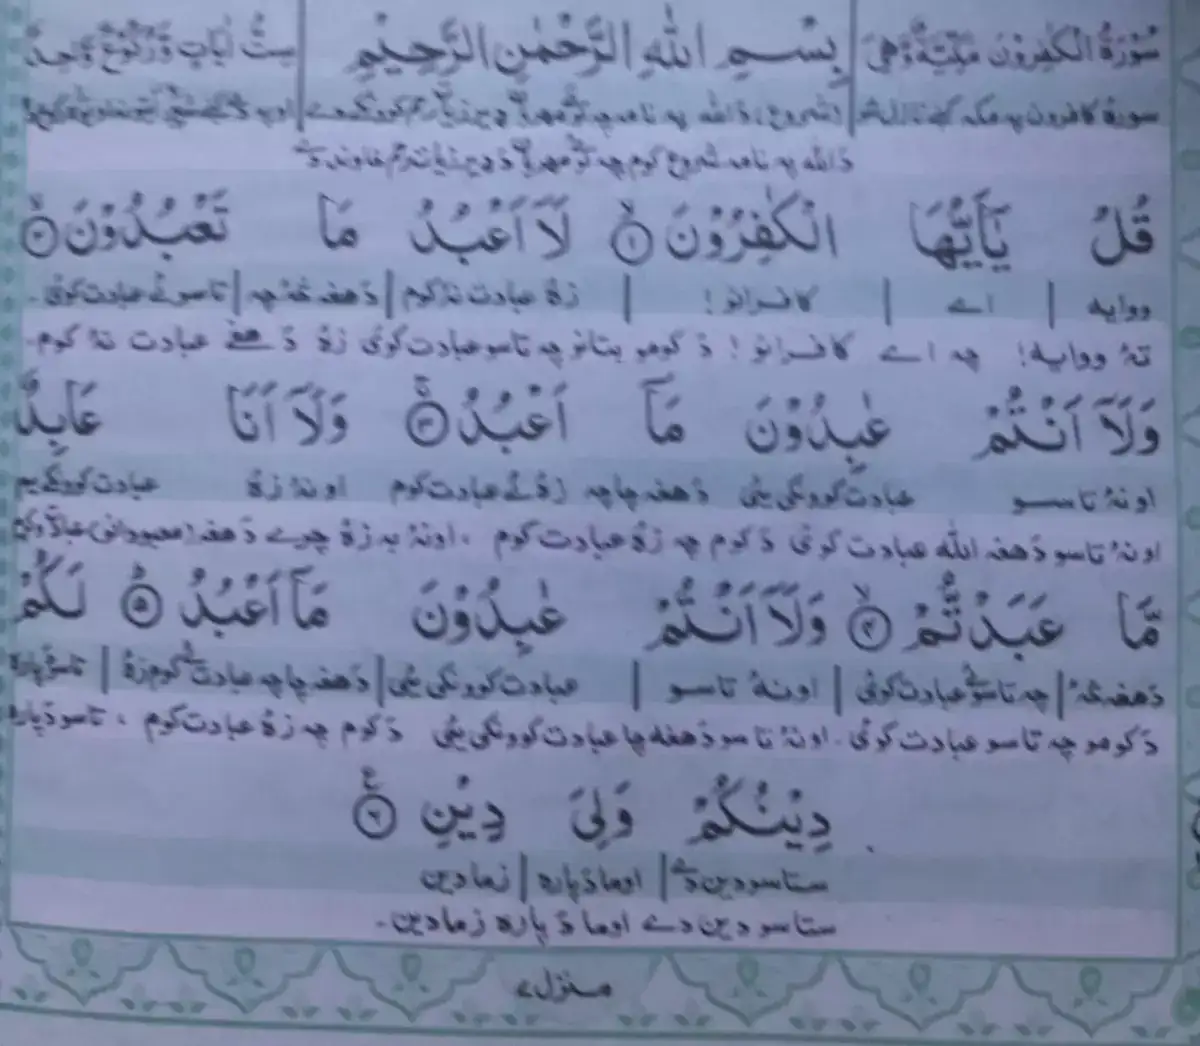 سُوْرَةُ الْكٰفِرُوْنَ مَكِّيَّةٌ وَّهِيَ بِسْمِ اللهِ الرَّحْمٰنِ الرَّحِيْمِ سِتُّ اٰيَاتٍ وَّرُكُوْعٌ وَّاحِدٌ
سورة کافرون په مکه کښے نازل شو (شروع) دَ الله په نامه چه
دَ الله په نامه شروع کوم چه ډير مهربان دَ زيات رحم خاوند دے
قُلْ يٰۤاَيُّهَا الْكٰفِرُوْنَ ۙ‏﴿۱﴾ لَاۤ اَعْبُدُ مَا تَعْبُدُوْنَ ۙ‏﴿۲﴾
ووايه | اے | کافرانو! | زۀ عبادت نۀ کوم | دَ هغه څۀ چه | تاسو ئے عبادت کوئ۔
تۀ ووايه! چه اے کافرانو! دَ کومو بتانو چه تاسو عبادت کوئ زۀ دَ هغے عبادت نۀ کوم۔
وَلَاۤ اَنْتُمْ عٰبِدُوْنَ مَاۤ اَعْبُدُ ۚ‏﴿۳﴾ وَلَاۤ اَنَا عَابِدٌ
او نۀ تاسو عبادت کوونکی يئ دَ هغه چا چه زۀ ئے عبادت کوم او نۀ زۀ عبادت کوونکے يم
او نۀ تاسو دَ هغه الله عبادت کوئ دَ کوم چه زۀ عبادت کوم ، او نۀ به زۀ چرے دَ هغه (معبودانو) عبادت
مَّا عَبَدْتُّمْ ۙ‏﴿۴﴾ وَلَاۤ اَنْتُمْ عٰبِدُوْنَ مَاۤ اَعْبُدُ ؕ‏﴿۵﴾ لَكُمْ
دَ هغه څۀ | چه تاسو ئے عبادت کوئ | او نۀ تاسو | عبادت کوونکی يئ | دَ هغه چا چه عبادت ئے کوم زۀ | تاسو دَ پاره
دَ کومو چه تاسو عبادت کوئ۔ او نۀ تاسو دَ هغه چا عبادت کوونکی يئ دَ کوم چه زۀ عبادت کوم ، تاسو دَ پاره
دِيْنُكُمْ وَلِيَ دِيْنِ ۧ‏﴿۶﴾
ستاسو دين دے | او ما دَ پاره | زما دين
ستاسو دين دے او ما دَ پاره زما دين۔
منزل ۷